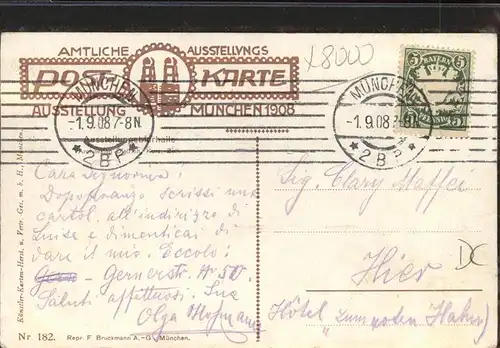 AMTLICHE AUSSTELLVNGS
POST KARTE
AUSSTELLUNG MÜNCHEN 1908
x8000
MÜNCHEN
-1.9.08 7-8N.
* 2 B.P. *
MÜNCHEN
-1.9.08
* 2 B.P. *
BAYERN
5 5
Cara Signorina!
Dopopranzo scrissi una
cartol. all'indirizzo di
Luise e dimenticai di
dare il mio. Eccolo:
Gernerstr. No 50
Saluti affettuosi. Sua
Olga Hofmann
Sig. Clary Maffei
Hier
Hôtel "zum roten Hahn"
DC
Künstler-Karten-Herst. u. Vertr. Ges. m. b. H., München.
Nr 182. Repr. F. Bruckmann A.-G., München.